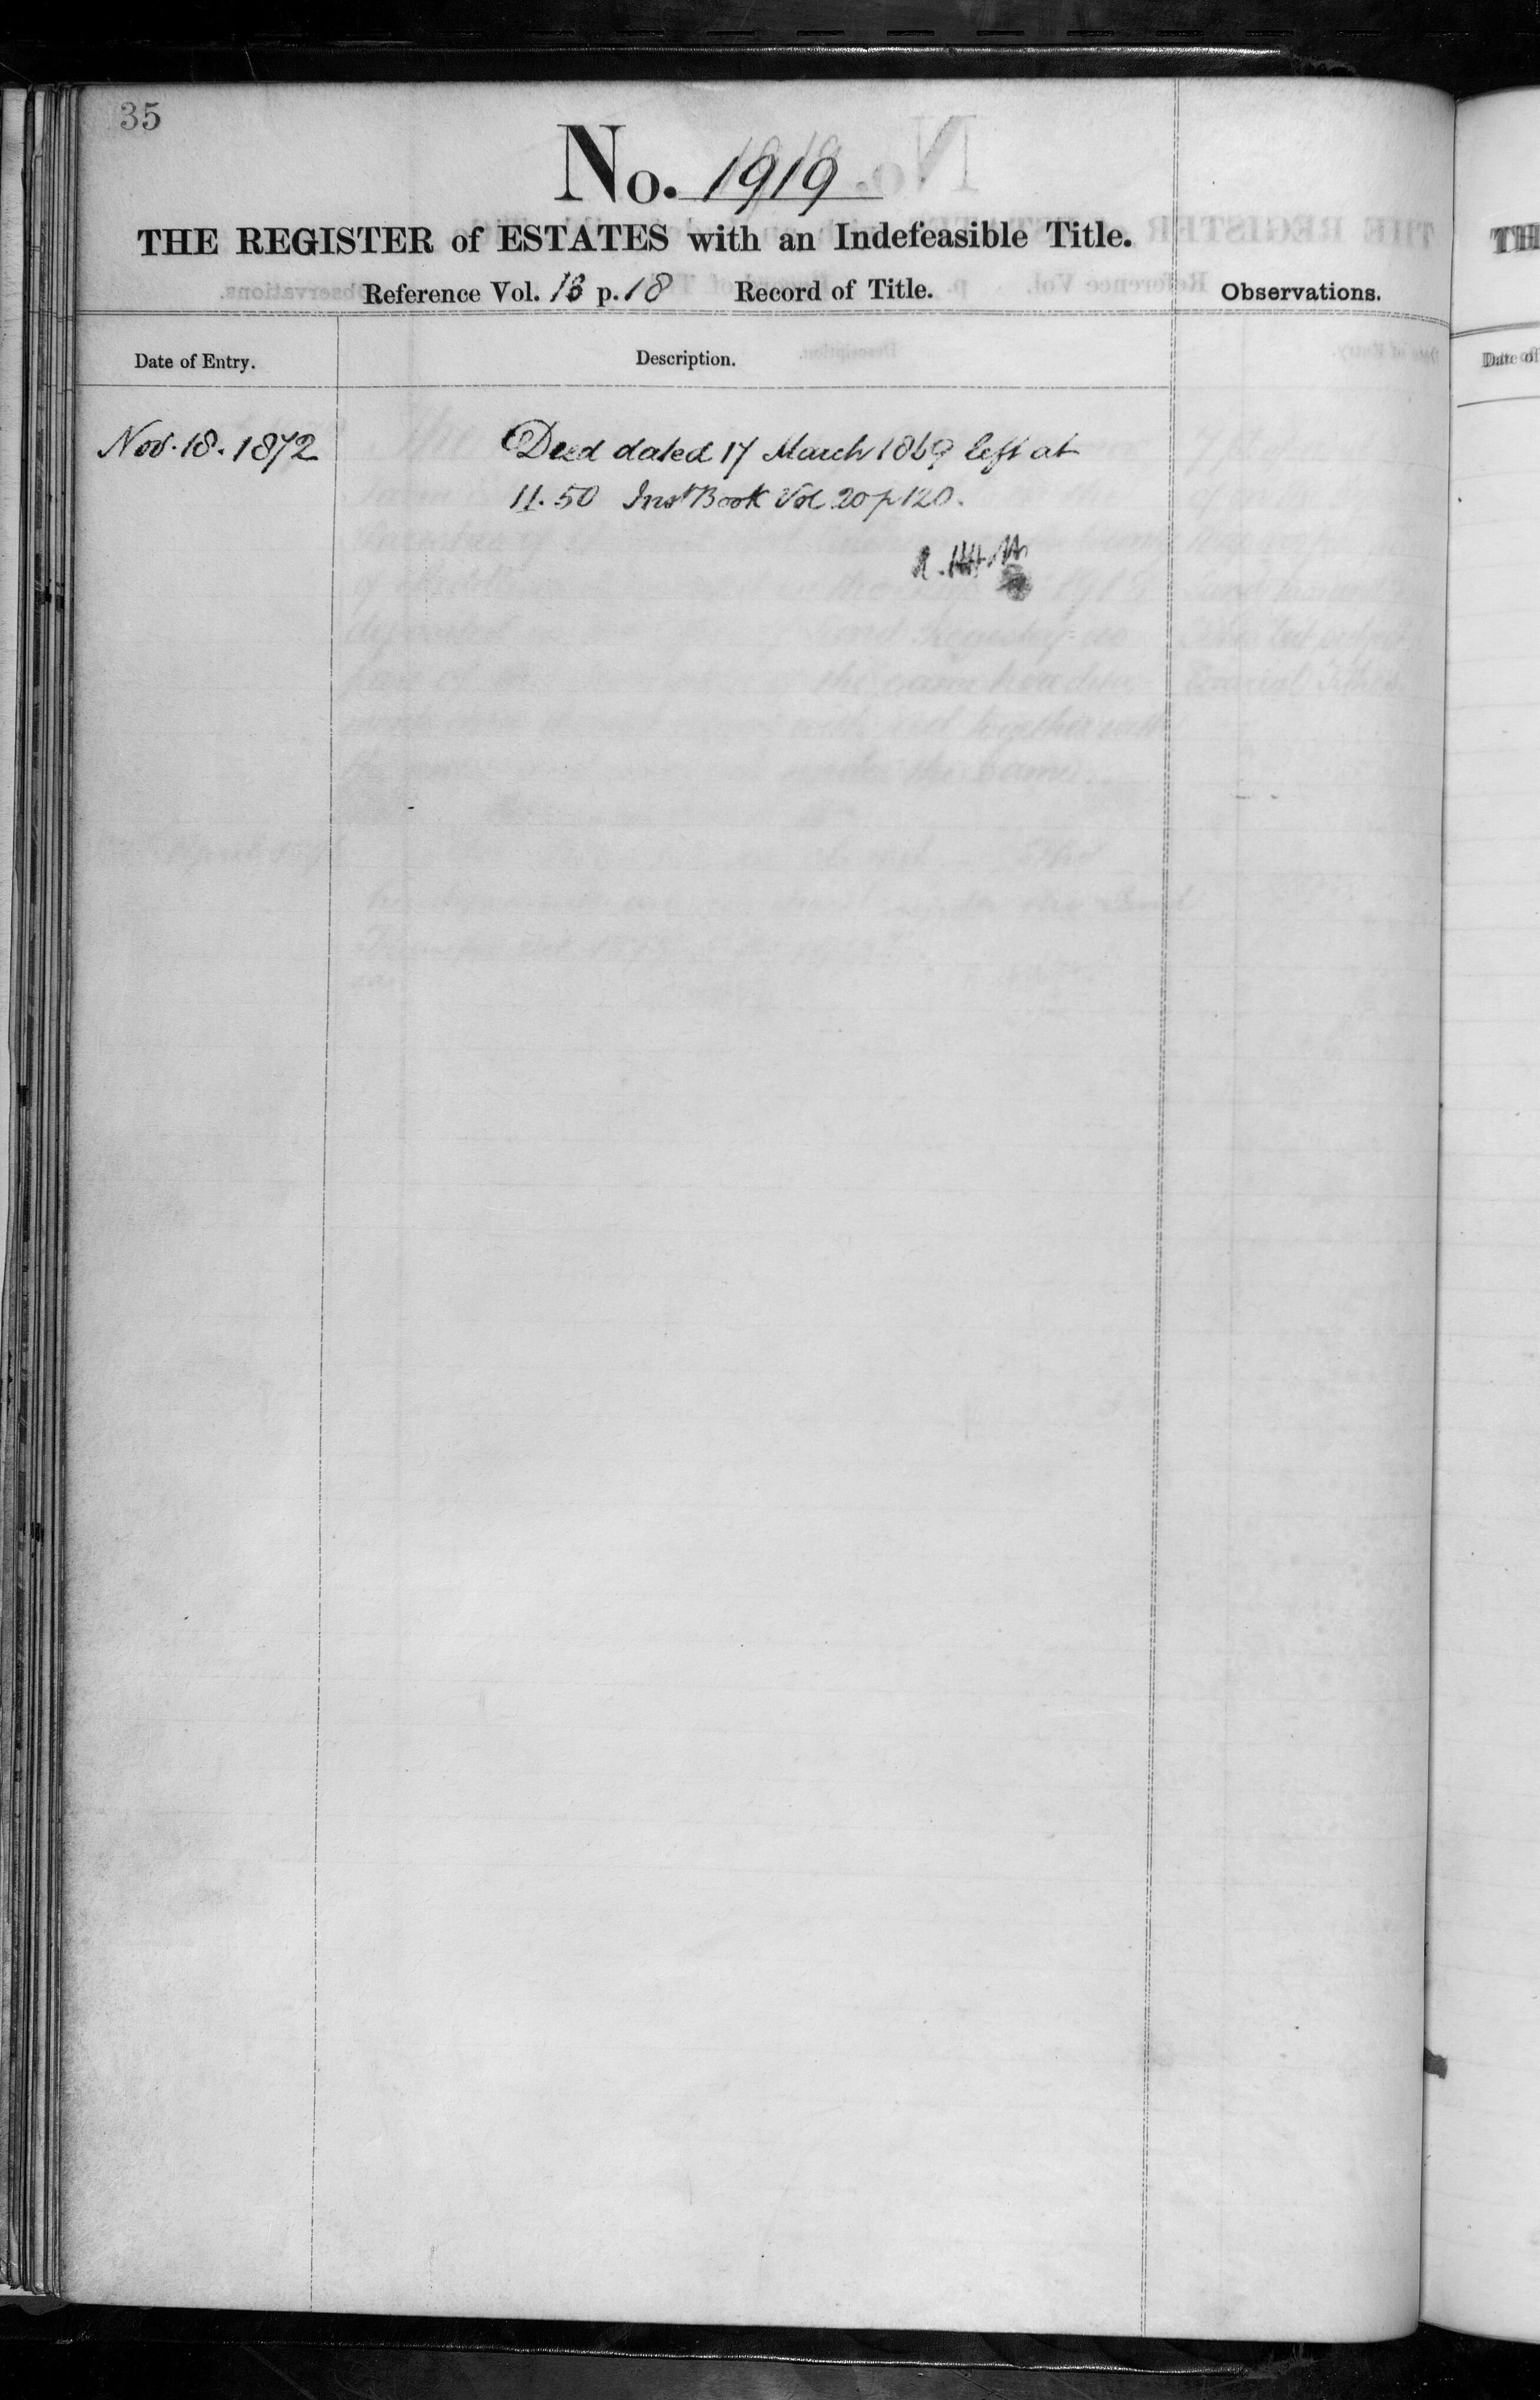 35
No. 1919
THE REGISTER of ESTATES with an Indefeasible Title.
Reference Vol. 13 p. 18 Record of Title.
Observations.
Date of Entry.
Description.
Nov. 18. 1872
Deed dated 17 March 1869 left at
11.50 Inst Book Vol 20 p 120.
TH
Date of